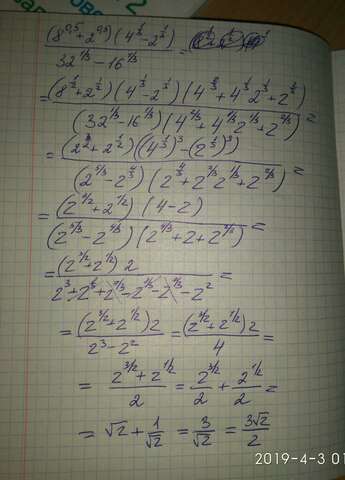 2
(8^0,5+2^0,5)(4^1/3-2^1/3)/(32^1/3-16^1/3)=
=(8^1/2+2^1/2)(4^1/3-2^1/3)(4^2/3+4^1/3 2^1/3+2^2/3)/((32^1/3-16^1/3)(4^2/3+4^1/3 2^1/3+2^2/3))=
=(2^3/2+2^1/2)((4^1/3)^3-(2^1/3)^3)/((2^5/3-2^4/3)(2^4/3+2^2/3 2^1/3+2^2/3))=
=(2^3/2+2^1/2)(4-2)/((2^5/3-2^4/3)(2^4/3+2+2^2/3))=
=(2^3/2+2^1/2)2/
=(2^3/2+2^1/2)2/(2^3-2^2)=(2^3/2+2^1/2)2/4=
=(2^3/2+2^1/2)/2=2^3/2/2+2^1/2/2=
=√2+1/√2=3/√2=3√2/2
2019-4-3 01